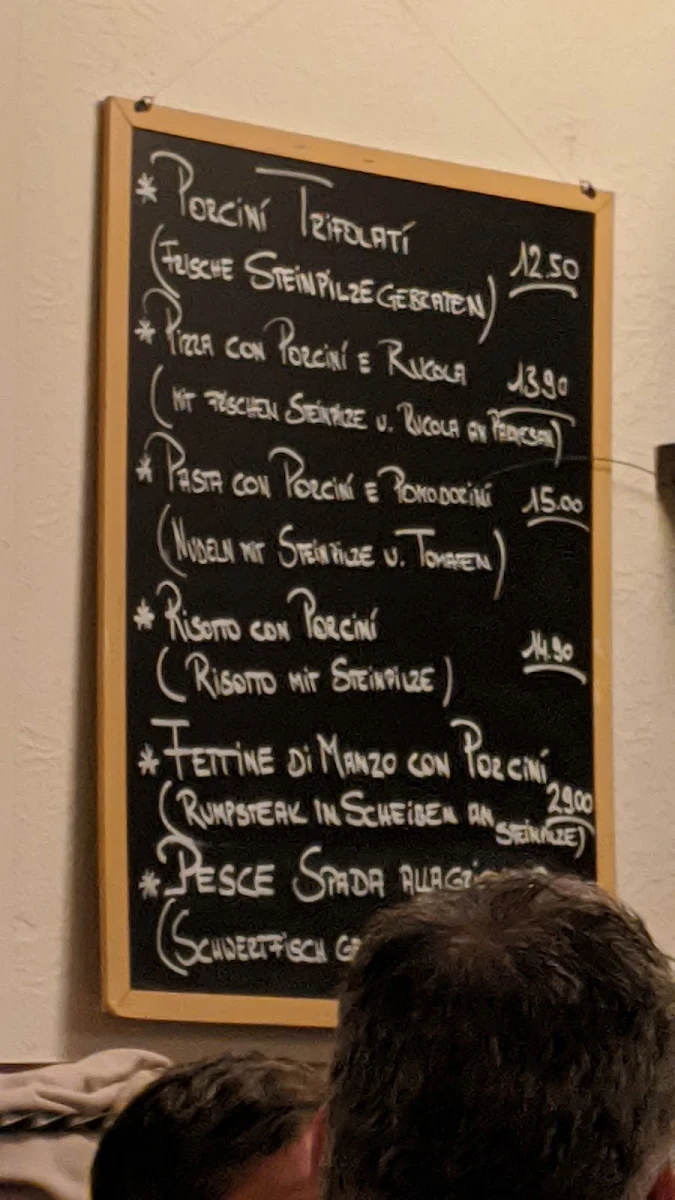 * PORCINÍ TRIFOLATÍ
12.50
(FRISCHE STEINPILZE GEBRATEN)
* PIZZA CON PORCINÍ E RUCOLA
13.90
(MIT FRISCHEN STEINPILZE U. RUCOLA AN PARMESAN)
* PASTA CON PORCINÍ E POMODORINÍ
15.00
(NUDELN MIT STEINPILZE U. TOMATEN)
* RISOTTO CON PORCINÍ
14.90
(RISOTTO MIT STEINPILZE)
* FETTINE DI MANZO CON PORCINÍ
29.00
(RUMPSTEAK IN SCHEIBEN AN STEINPILZE)
* PESCE SPADA ALLA
(SCHWERTFISCH